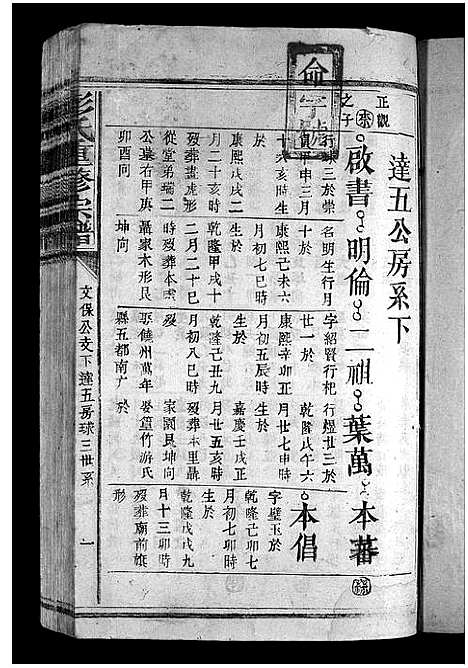 達五公房系下
正觀
之子
啟書 明倫 二祖 葉萬 本蕃
行球三於崇
貞甲申三月
十六亥時生
於
康熙戊戌二
月二十亥時
歿葬盧虎形
從堂弟瑞二
公墓右甲庚
卯酉向
名明生行月
十於
康熙己未六
月初七巳時
生於
乾隆甲戌十
二月二十巳
時歿葬本里
聶家木形艮
坤向
字紹賢行杞
廿一於
康熙辛卯正
月初五辰時
生於
乾隆己丑九
月初八巳時
歿
娶饒州萬年
縣五都南广
行煜廿三於
乾隆戊午六
月廿七申時
生於
嘉慶壬戌正
月廿五亥時
歿葬本里聶
家園艮坤向
娶篁竹游氏
於
本倡
字璧玉於
乾隆己卯七
月初七卯時
生於
乾隆戊戌九
月十三卯時
歿葬廟前旗
形
彭氏重修宗譜
文保公支下達五房球三世系
一